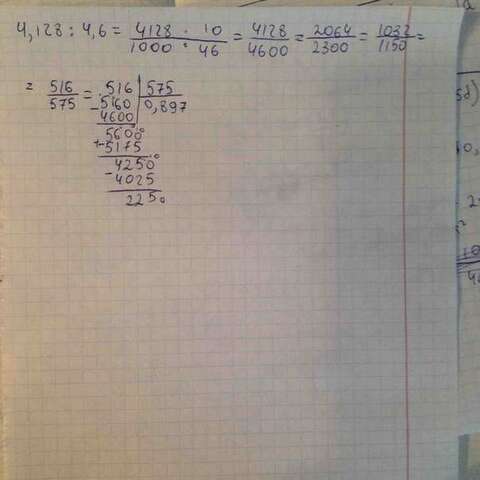 4,128 : 4,6 = 4128 · 10 / 1000 · 46 = 4128 / 4600 = 2064 / 2300 = 1032 / 1150 =
= 516 / 575 = 516 | 575
5160 | 0,897
4600
5600
- 5175
4250
- 4025
2250